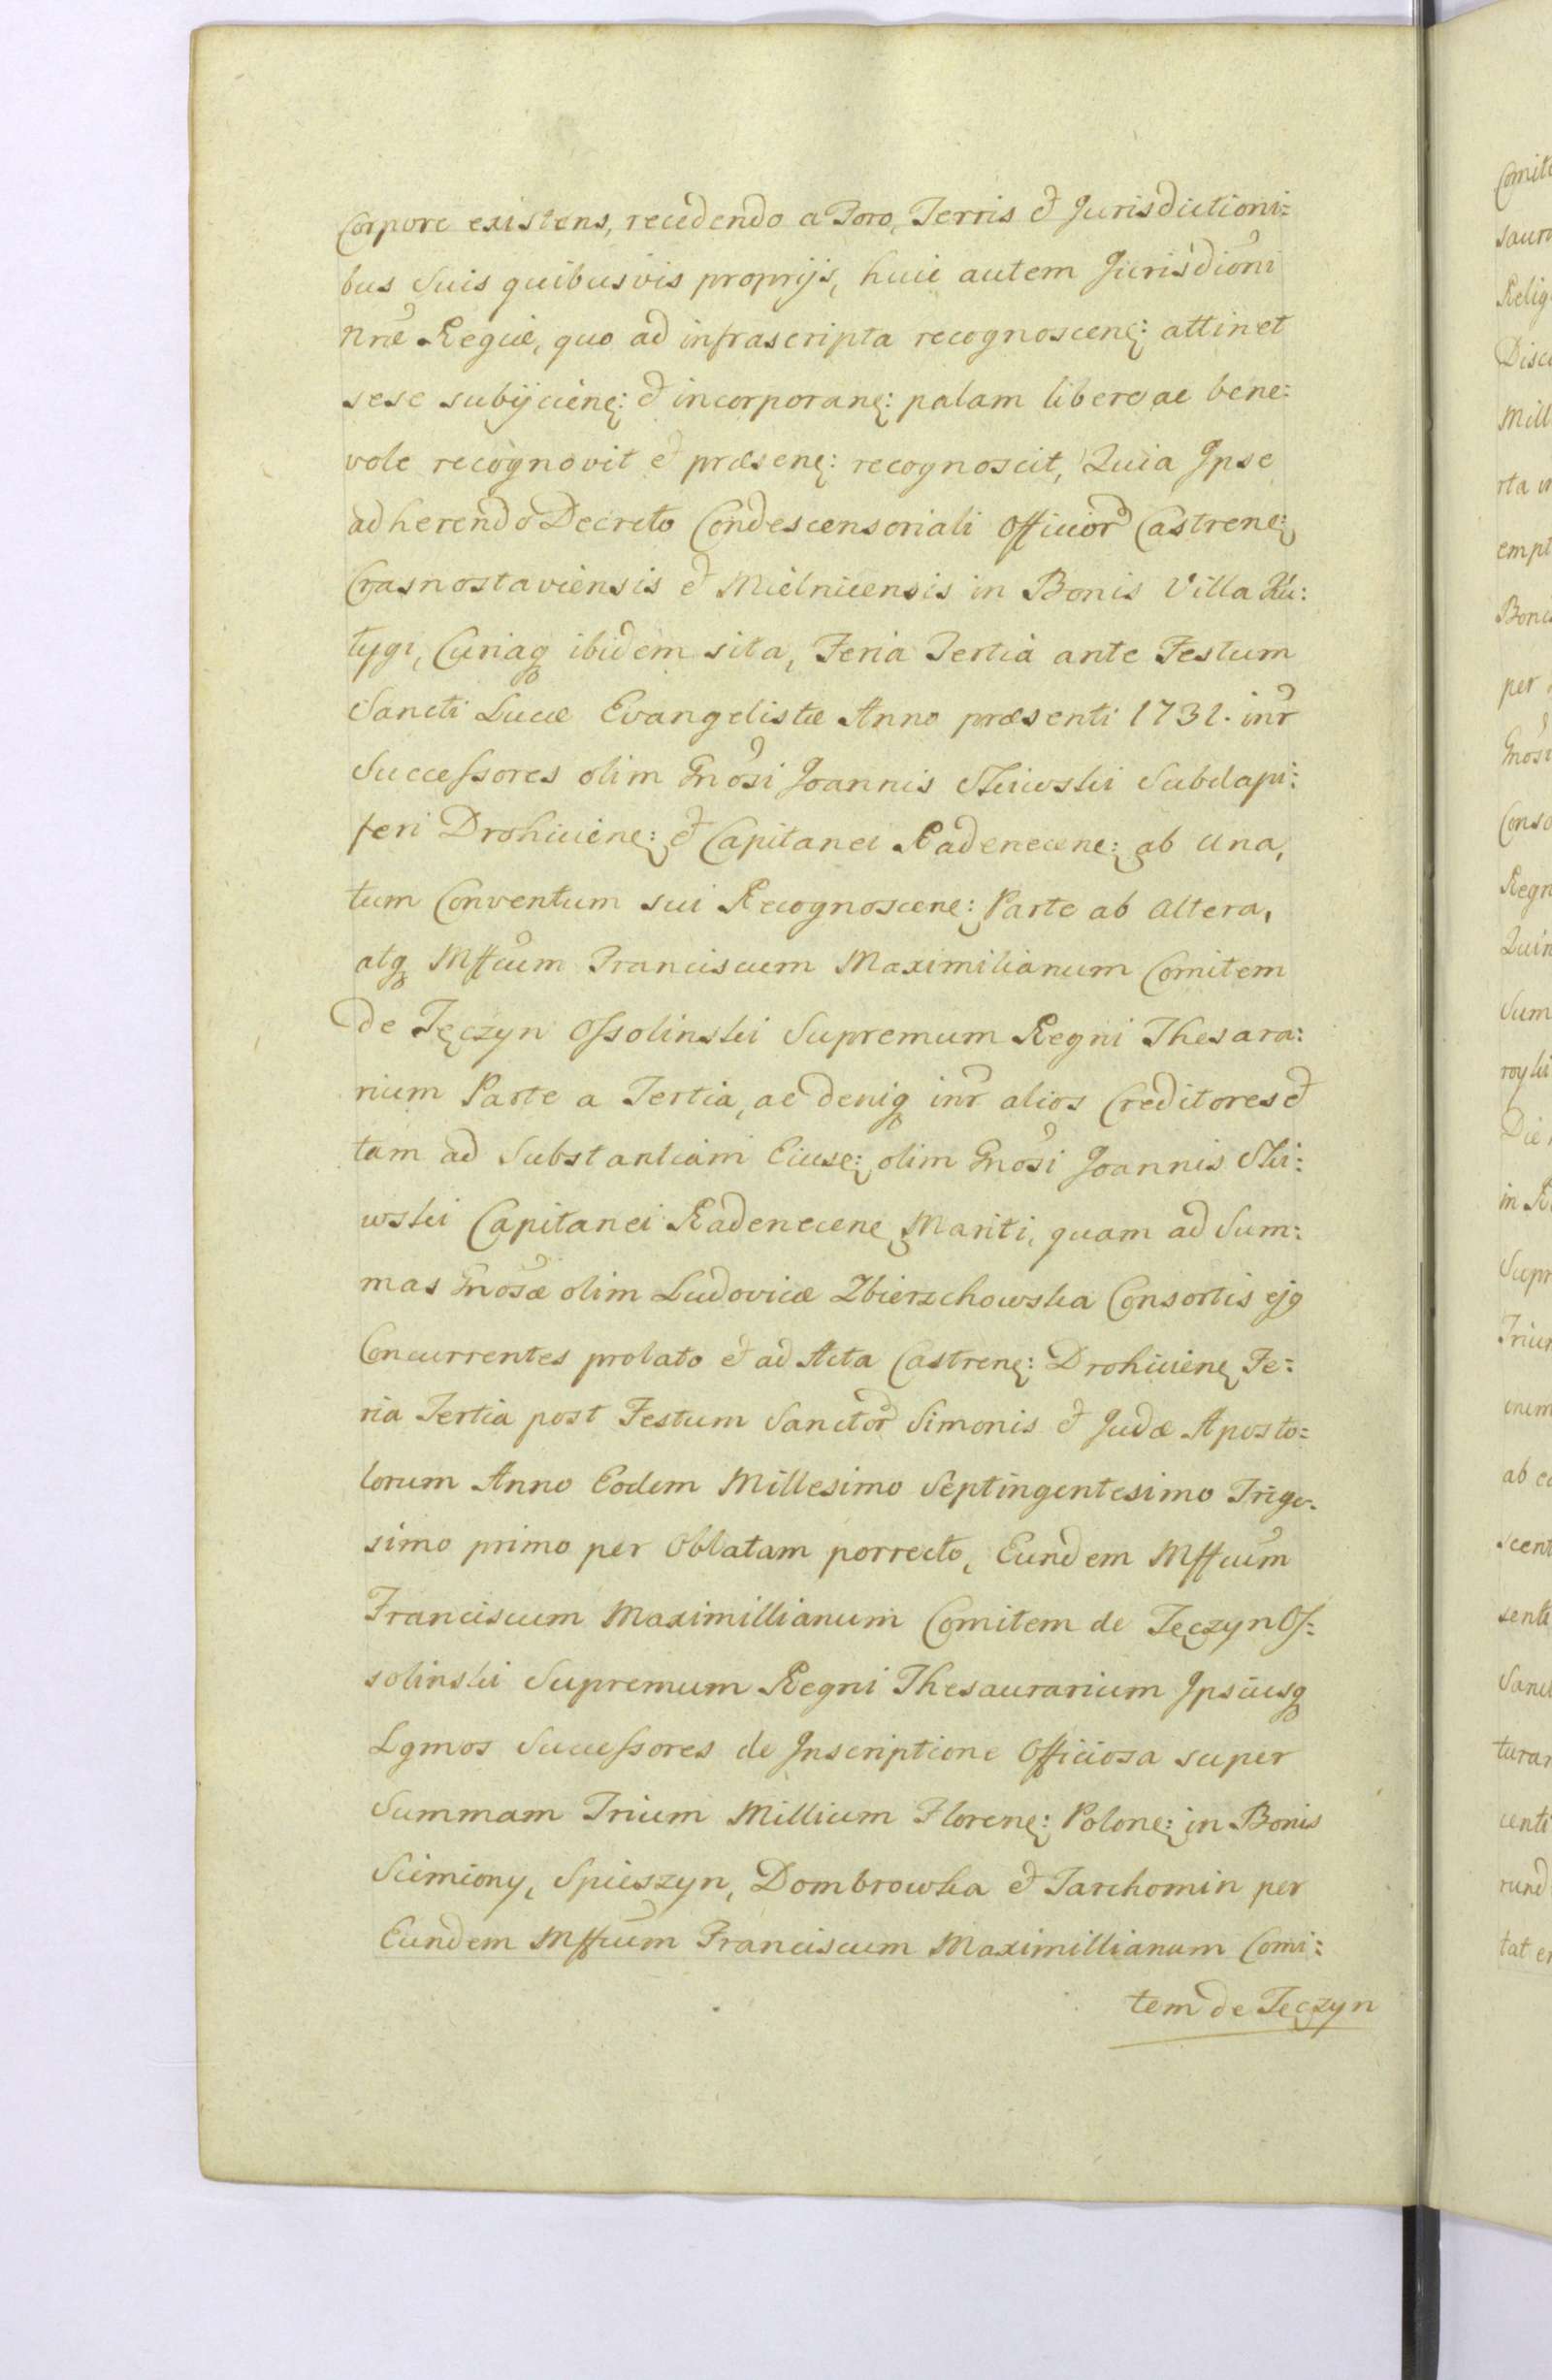 Corpore existens, recedendo a Foro, Terris et Jurisdictioni=
bus Suis quibusvis proprijs, huic autem Jurisdioni
nræ Regiæ, quo ad infrascripta recognoscenę: attinet
sese subijcienę: et incorporanę: palam libere ac bene=
vole recognovit et præsenę: recognoscit, Quia Ipse
adherendo Decreto Condescensoriali Officior Castrenę:
Crasnostaviensis et Mielnicensis in Bonis Villa Ru:
tygi, Curiaq ibidem sita, Feria Tertia ante Festum
Sancti Lucæ Evangelistæ Anno præsenti 1731. inr
Successores olim Gnosi Joannis Skiwski Subdapi:
feri Drohicienę: et Capitanei Radenecenę: ab una,
tum Conventum sui Recognoscenę: Parte ab altera,
atq Mffcum Franciscum Maximilianum Comitem
de Tęczyn Ossolinski Supremum Regni Thesara:
rium Parte a Tertia, ac deniq inr alios Creditores et
tam ad Substantiam Eiusę: olim Gnosi Joannis Ski:
wski Capitanei Radenecenę Mariti, quam ad Sum:
mas Gnosæ olim Ludovicæ Zbierzchowska Consortis ejq
Concurrentes prolato et ad Acta Castrenę: Drohicienę Fe=
ria Tertia post Festum Sanctor Simonis et Judæ Aposto=
lorum Anno Eodem Millesimo Septingentesimo Trige-
simo primo per Oblatam porrecto, Eundem Mffcum
Franciscum Maximillianum Comitem de Tęczyn Os=
solinski Supremum Regni Thesaurarium Ipsiusq
Lgmos Successores de Inscriptione Officiosa super
Summam Trium Millium Florenę: Polonę: in Bonis
Scimiony, Spieszyn, Dombrowka et Tarchomin per
Eundem Mffcum Franciscum Maximillianum Comi=
tem de Tęczyn
Comite
saur
Relig
Disc
Mill
rta in
empt
Boni
per
Gnosi
Conso
Regn
Quin
Sum
royki
Die
in R
Supr
Trium
ab
scent
senti
Sanc
turar
centi
rund
tat er